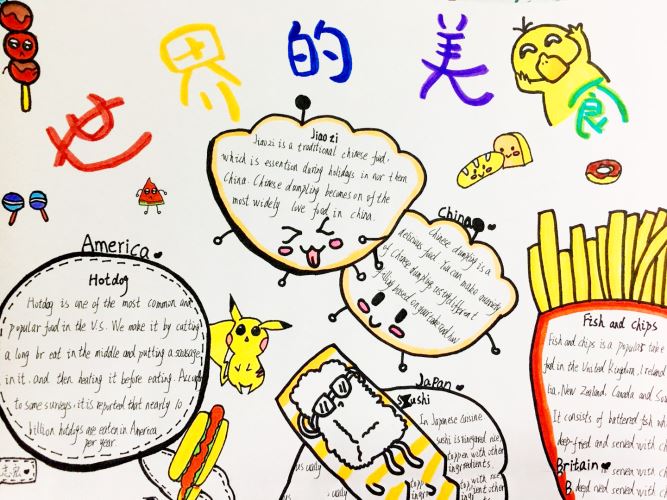 世界的美食
Jiao zi
Jiaozi is a traditional chinese food,
which is essention during holidays in nor thern
China. Chinese dumpling becomes on of the
most widely love food in china.
China
Chinese dumpling is a
delicious food. You can make
of Chinese dumpling
based on your
America
Hotdog
Hotdog is one of the most common and
popular food in the U.S. We make it by cutting
a long br eat in the middle and putting a sausage
in it. and then heating it before eating. Accor
to some surveys, it is reported that nearly 10
billion hotdogs are eaten in America
per year
Japan
Sushi
In Japanese cuisine
sushi is vinegared rice
topped with other
ingredients.
Fish and chips
Fish and chips is a popular take
food in the United Kingdom, Ireland
lia, New Zealand, Canada and Sou
It consists of battered fish wh
deep-fried and served with ch
Britain
served with ch